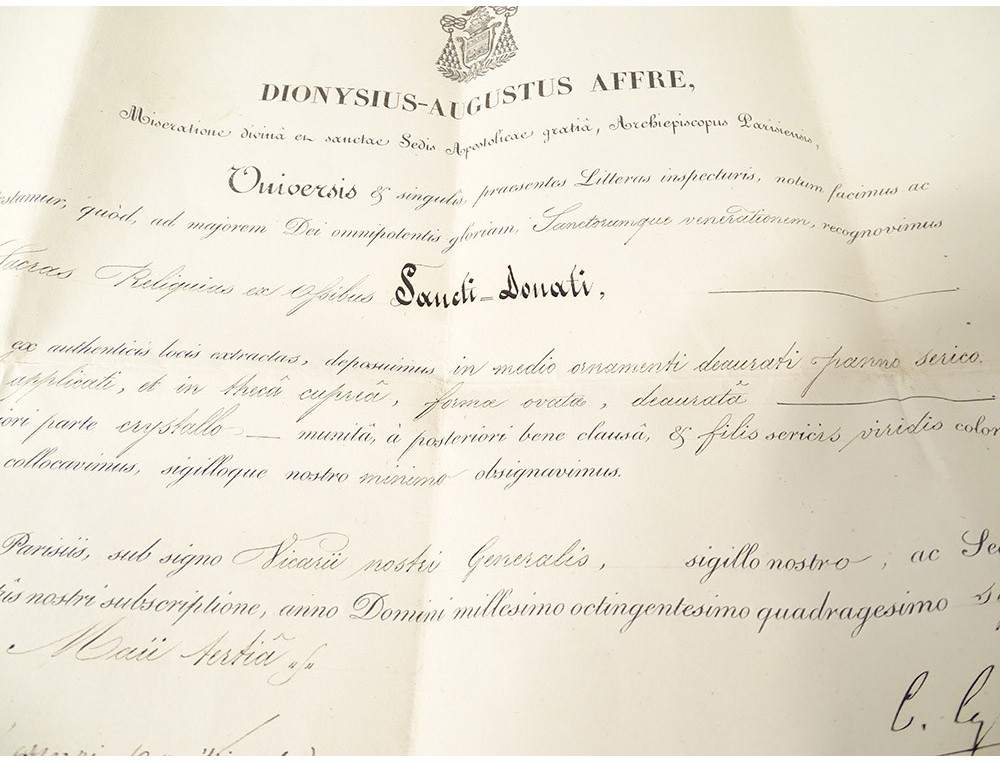 DIONYSIUS-AUGUSTUS AFFRE,
Miseratione divinâ et sanctae Sedis Apostolicae gratiâ, Archiepiscopus Parisiensis,
Universis & singulis praesentes Litteras inspecturis, notum facimus ac
estamur, quòd, ad majorem Dei omnipotentis gloriam, Sanctorumque venerationem, recognovimus
Sacras Reliquias ex Ossibus Sancti-Donati,
ex authenticis locis extractas, deposuimus in medio ornamenti deaurati panno serico
applicati, et in thecâ cupriâ, formæ ovatæ, deauratâ
iori parte crystallo munitâ, à posteriori bene clausâ, & filis sericis viridis color
collocavimus, sigilloque nostro minimo obsignavimus.
Parisiis, sub signo Vicarii nostri Generalis, sigillo nostro, ac Se
ûs nostri subscriptione, anno Domini millesimo octingentesimo quadragesimo
Maii tertiâ
C.